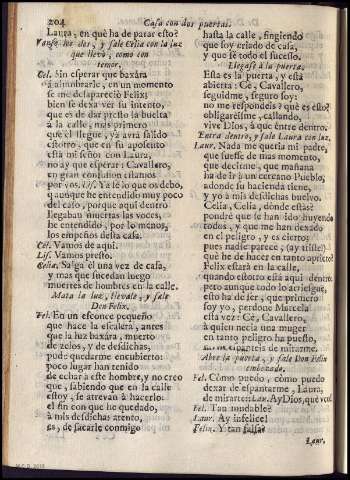 204 Casa con dos puertas.
Laura, en què ha de parar esto?
Vanse los dos, y sale Celia con la luz
que llevò, como con
temor.
Cel. Sin esperar que baxàra
à alumbrarle, en un momento
se me desapareciò Felix;
bien se dexa vèr su intento,
que es de dàr presto la buelta
à la calle, mas primero
que èl llegue, yà avrà salido
estotro, que en su aposento
està mi señor con Laura;
no ay que esperar: Cavallero,
en gran confusion estamos
por vos. Lis. Yà sè lo que os debo,
y aunque he entendido muy poco
del caso, porque aqui dentro
llegaban muertas las voces,
he entendido, por lo menos,
los empeños della casa.
Cel. Vamos de aqui.
Lis. Vamos presto.
Celia. Salga èl una vez de casa,
y mas que sucedan luego
muertes de hombres en la calle.
Mata la luz, llevale, y sale
Don Felix.
Fel. En un esconce pequeño
que hace la escalera, antes
que la luz baxàra, muerto
de zelos, y de desdichas,
pude quedarme encubierto:
poco lugar han tenido
de echar à este hombre, y no creo
que, sabiendo que en la calle
estoy, se atrevan à hacerlo:
el fin con que he quedado,
à mis desdichas atento,
es, de sacarle conmigo
hasta la calle, fingiendo
que soy criado de casa,
y que sè todo el sucesso.
Llegase à la puerta.
Esta es la puerta, y està
abierta: Cè, Cavallero,
seguidme, seguro soy:
no me respondeis? què es esto?
obligarèisme, callando,
vive Dios, à que entre dentro.
Entra dentro, y sale Laura con luz.
Laur. Nada me queria mi padre,
que fuesse de mas momento,
que decirme, que mañana
ha de ir à un cercano Pueblo,
adonde su hacienda tiene,
y yo à mis desdichas buelvo.
Celia, Celia, dònde estàs?
pondrè que se han ido huyendo
todos, y que me han dexado
en el peligro, y es cierto;
pues nadie parece; (ay triste!)
què he de hacer en tanto aprieto!
Felix estarà en la calle,
quando estotro està aqui dentro;
pero aunque todo lo arriesgue,
esto ha de ser, que primero
soy yo, perdone Marcela
esta vez: Cè, Cavallero,
à quien necia una muger
en tanto peligro ha puesto,
no os espanteis de mirarme.
Abre la puerta, y sale Don Felix
embozado.
Fel. Còmo puedo, còmo puedo
dexar de espantarme, Laura,
de mirarte: Laur. Ay Dios, què veo!
Fel. Tan mudable?
Laur. Ay infelice!
Felix. Y tan falsa?
Laur.